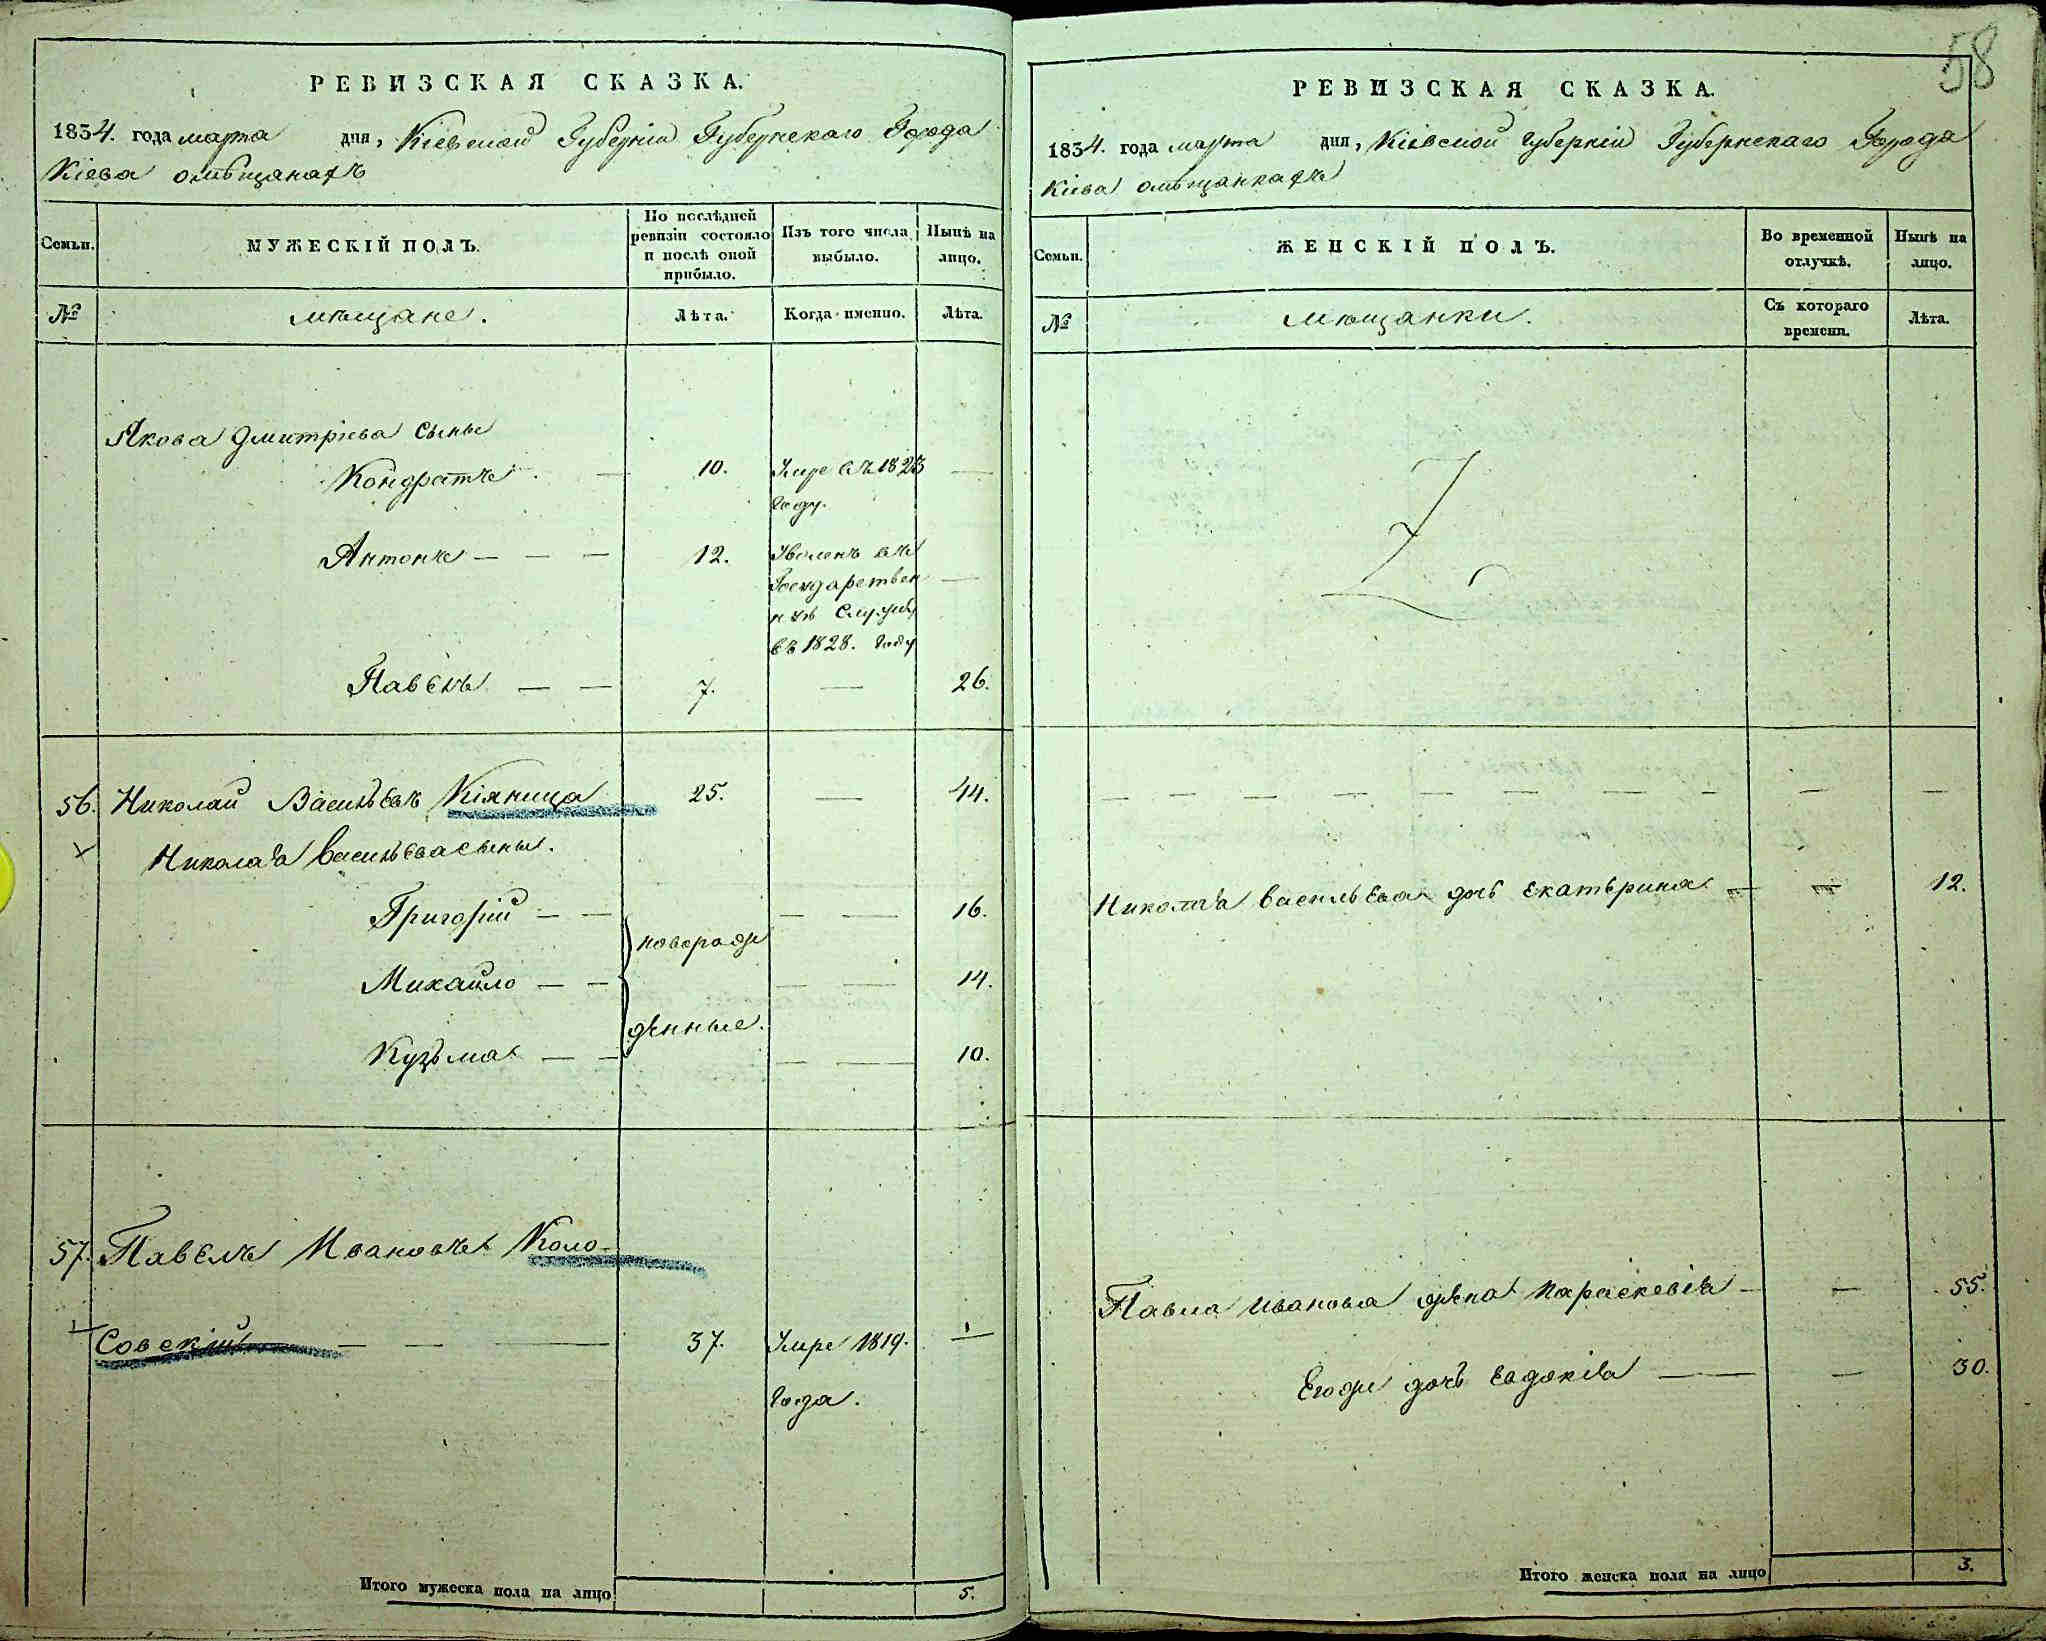 58
РЕВИЗСКАЯ СКАЗКА.
1834. года марта дня, Кіевской Губерніи Губернскаго Города
Кіева омѣщанахъ
Семьи.
МУЖЕСКІЙ ПОЛЪ.
По послѣдней ревизіи состояло и послѣ оной прибыло.
Изъ того числа выбыло.
Нынѣ на лицо.
№
мѣщане.
Лѣта.
Когда именно.
Лѣта.
Якова Дмитріева сыны
Кондратъ - 10. Умре въ 1823 —
году.
Антонъ — — — 12. Уволенъ въ
Государствен —
нъ Службу
въ 1828. году
Павелъ — — 7. — 26.
56. Николай Васильевъ Кіяница 25. — 44.
Николая Васильева сыны.
Григорій — — — — 16.
новорож
Михайло — — — — 14.
денные.
Кузьма — — — — 10.
57. Павелъ Ивановъ Коло-
Совскій — — — 37. Умре 1819. —
года.
Итого мужеска пола на лицо 5.
РЕВИЗСКАЯ СКАЗКА.
1834. года марта дня, Кіевской Губерніи Губернскаго Города
Кіева омѣщанкахъ
Семьи.
ЖЕНСКІЙ ПОЛЪ.
Во временной отлучкѣ.
Нынѣ на лицо.
№
мѣщанки.
Съ котораго времени.
Лѣта.
Николая васильева дочь екатерина — — 12.
Павла иванова жена параскевія — — 55.
Егожъ дочь евдокія — — 30.
Итого женска пола на лицо 3.